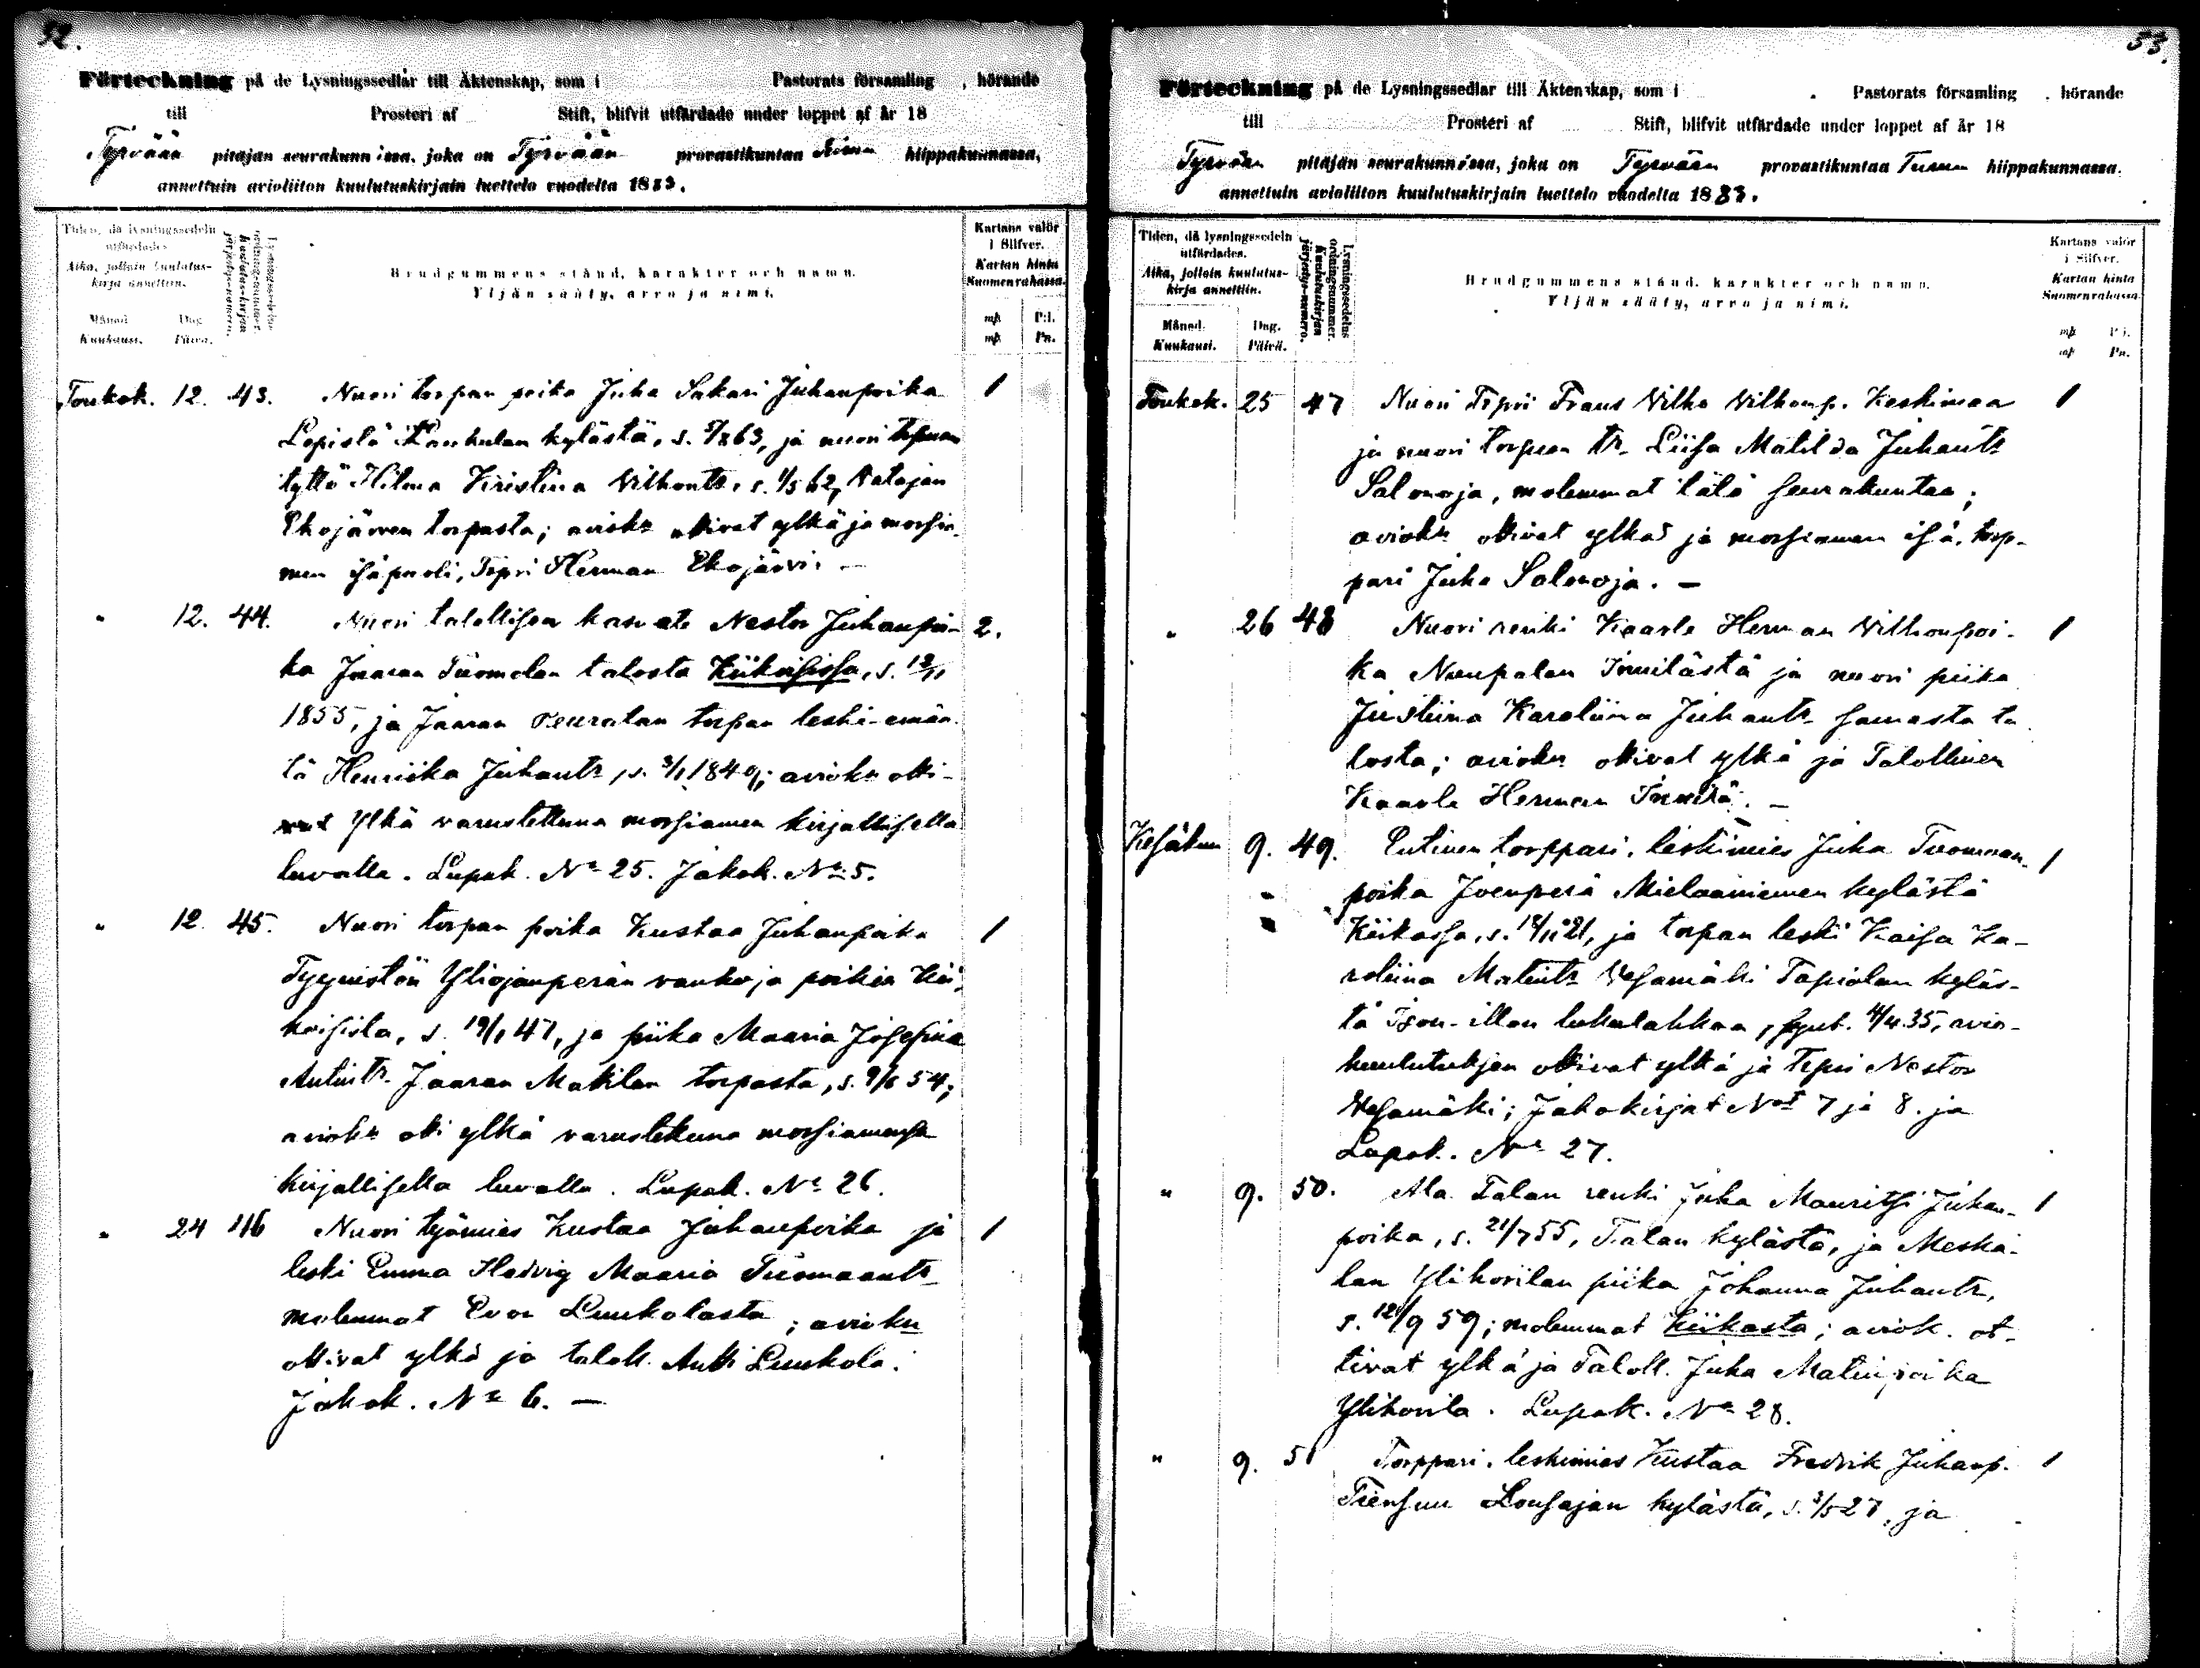 52.
Förteckning på de Lysningssedlar till Äktenskap, som i Pastorats församling , hörande
till Prosteri af Stift, blifvit utfärdade under loppet af år 18
Tyrvään pitäjän seurakunnissa, joka on Tyrvään provastikuntaa Turun hiippakunnassa,
annettuin avioliiton kuulutuskirjain luettelo vuodelta 1883.
Tiden, då lysningssedeln utfärdades.
Aika, jolloin kuulutus-
kirja annettiin.
Månad. Dag.
Kuukausi. Päivä.
Lysningssedelns
ordningsnummer.
Kuulutuskirjan
järjestys-numero.
Brudgummens stånd, karakter och namn.
Yljän sääty, arvo ja nimi.
Kartans valör
i Silfver.
Kartan hinta
Suomenrahassa.
mk P:i.
mk Pn.
Toukok. 12. 43. Nuori torpan poika Juha Sakari Juhanpoika 1
Lepistö kylästä, s. 5/8 63, ja nuori torpan
tyttö Hilma Kristiina Vilhontr, s. 1/5 62, Ratajan
Ekojärven torpasta; aviokn ottivat ylkä ja morsia-
men isäpuoli, Torpri Herman Ekojärvi. —
" 12. 44. Nuori talollisen kasvate Nestor Juhanpoi- 2.
ka Jaaran Tuomolan talosta Kiikoisissa, s. 12/11
1855, ja Jaaran Peuralan torpan leski-emän-
tä Henriika Juhantr, s. 3/1 1849; aviokn otti-
vat Ylkä varustettuna morsiamen kirjallisella
luvalla. Lupak. No 25. Jakok. No 5.
" 12. 45. Nuori torpan poika Kustaa Juhanpoika 1
Tyynistön Yliojanperän vanhoja poikia Kii-
koisista, s. 19/1 47, ja piika Maaria Josefiina
Antintr. Jaaran Makilan torpasta, s. 9/6 54;
aviokn otti ylkä varustettuna morsiamensa
kirjallisella luvalla. Lupak. No 26.
" 24 46 Nuori työmies Kustaa Juhanpoika ja 1
leski Emma Hedvig Maaria Tuomaantr
molemmat Evon Luukolasta; aviokn
ottivat ylkä ja talok. Antti Luukola.
Jakok. No 6. —
53.
Förteckning på de Lysningssedlar till Äktenskap, som i Pastorats församling , hörande
till Prosteri af Stift, blifvit utfärdade under loppet af år 18
Tyrvään pitäjän seurakunnissa, joka on Tyrvään provastikuntaa Turun hiippakunnassa.
annettuin avioliiton kuulutuskirjain luettelo vuodelta 1883.
Tiden, då lysningssedeln
utfärdades.
Aika, jolloin kuulutus-
kirja annettiin.
Månad. Dag.
Kuukausi. Päivä.
Lysningssedelns
ordningsnummer.
Kuulutuskirjan
järjestys-numero.
Brudgummens stånd, karakter och namn.
Yljän sääty, arvo ja nimi.
Kartans valör
i Silfver.
Kartan hinta
Suomenrahassa.
mk P:i.
mk Pn.
Toukok. 25 47 Nuori Torpri Frans Vilho Vilhonp. Keskimaa 1
ja nuori torpan tr. Liisa Matilda Juhantr
Salonoja, molemmat tätä seurakuntaa;
aviokn ottivat ylkä ja morsiamen isä, torp-
pari Juha Salonoja. —
" 26 48 Nuori renki Kaarle Herman Vilhonpoi- 1
ka Nuupalan Innilästä ja nuori piika
Justiina Karoliina Juhantr samasta ta-
losta; aviokn ottivat ylkä ja Talollinen
Kaarle Herman Innilä. —
Kesäkuu 9. 49. Entinen torppari, leskimies Juha Tuomaan- 1
poika Joenperä Mielaanimen kylästä
Kiikassa, s. 18/12 21, ja torpan leski Kaisa Ka-
roliina Matintr Vesamäki Tapiolan kyläs-
tä Ison-illon lukulahkoa, synt. 4/4 35, avio-
kuulutuksen ottivat ylkä ja Torpri Nestor
Vesamäki; Jakokirjat Not 7 ja 8. ja
Lupak. No 27.
" 9. 50. Ala Talan renki Juha Mauritsi Juhan- 1
poika, s. 21/7 55, Talan kylästä, ja Meskä-
lan Ylihorilan piika Johanna Juhantr,
s. 12/9 59; molemmat Kiikasta; aviok. ot-
tivat ylkä ja Taloll. Juha Matinpoika
Ylihorila. Lupak. No 28.
" 9. 51 Torppari, leskimies Kustaa Fredrik Juhanp. 1
Tiensuu Lousajan kylästä, s. 3/5 27, ja